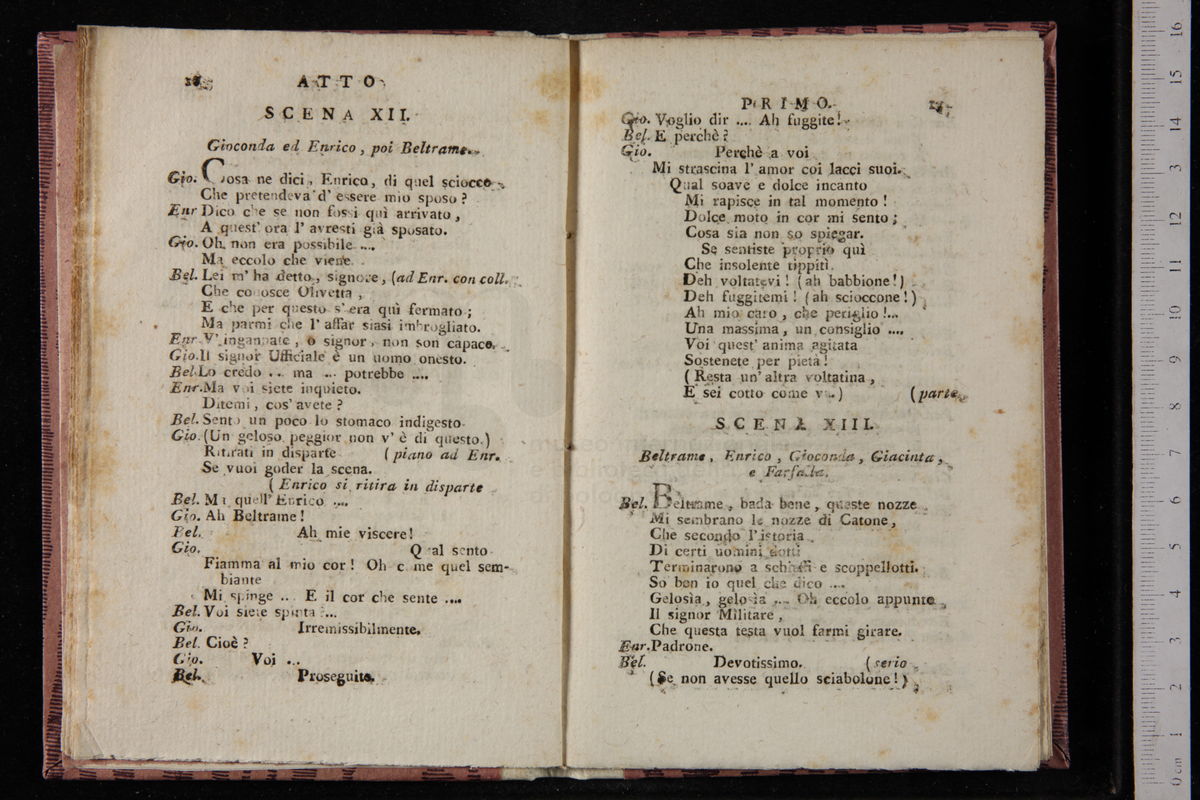 ATTO
SCENA XII.
Gioconda ed Enrico, poi Beltrame.
Gio. Cosa ne dici, Enrico, di quel sciocco,
Che pretendeva d' essere mio sposo?
Enr Dico che se non fossi quì arrivato,
A quest' ora l' avresti già sposato.
Gio. Oh, non era possibile ....
Ma eccolo che viene.
Bel. Lei m' ha detto, signore, (ad Enr. con coll.
Che conosce Olivetta,
E che per questo s' era quì fermato;
Ma parmi che l' affar siasi imbrogliato.
Enr. V' ingannate, o signor, non son capace.
Gio. Il signor Ufficiale è un uomo onesto.
Bel. Lo credo ... ma ... potrebbe ....
Enr. Ma voi siete inquieto.
Ditemi, cos' avete?
Bel. Sento un poco lo stomaco indigesto.
Gio. (Un geloso peggior non v' è di questo.)
Ritirati in disparte (piano ad Enr.
Se vuoi goder la scena.
(Enrico si ritira in disparte
Bel. Ma quell' Enrico ....
Gio. Ah Beltrame!
Bel. Ah mie viscere!
Gio. Qual sento
Fiamma al mio cor! Oh come quel sem-
biante
Mi spinge ... E il cor che sente ....
Bel. Voi siete spinta ....
Gio. Irremissibilmente.
Bel. Cioè?
Gio. Voi ...
Bel. Proseguite.
PRIMO.
Gio. Voglio dir .... Ah fuggite!
Bel. E perchè?
Gio. Perchè a voi
Mi strascina l' amor coi lacci suoi.
Qual soave e dolce incanto
Mi rapisce in tal momento!
Dolce moto in cor mi sento;
Cosa sia non so spiegar.
Se sentiste proprio quì
Che insolente tippitì.
Deh voltatevi! (ah babbione!)
Deh fuggitemi! (ah scioccone!)
Ah mio caro, che periglio!...
Una massima, un consiglio ....
Voi quest' anima agitata
Sostenete per pietà!
(Resta un' altra voltatina,
E sei cotto come va.) (parte.
SCENA XIII.
Beltrame, Enrico, Gioconda, Giacinta,
e Farfalla.
Bel. Beltrame, bada bene, queste nozze
Mi sembrano le nozze di Catone,
Che secondo l' istoria
Di certi uomini dotti
Terminarono a schiaffi e scoppellotti.
So ben io quel che dico ....
Gelosìa, gelosìa .... Oh eccolo appunto
Il signor Militare,
Che questa testa vuol farmi girare.
Enr. Padrone.
Bel. Devotissimo. (serio
(Se non avesse quello sciabolone!)
0 cm 1 2 3 4 5 6 7 8 9 10 11 12 13 14 15 16